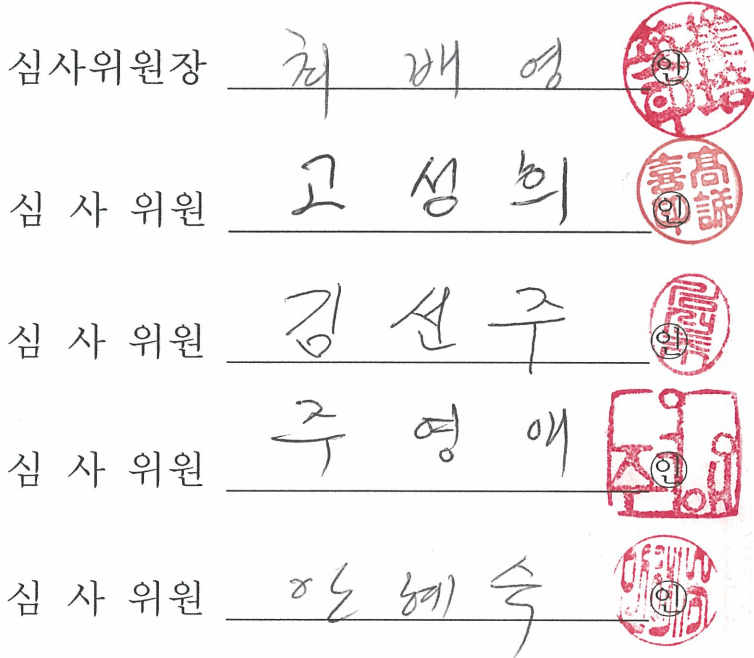 심사위원장 최 배 영 인
심 사 위원 고 성 희 인
심 사 위원 김 선 주 인
심 사 위원 주 영 애 인
심 사 위원 안 혜 숙 인